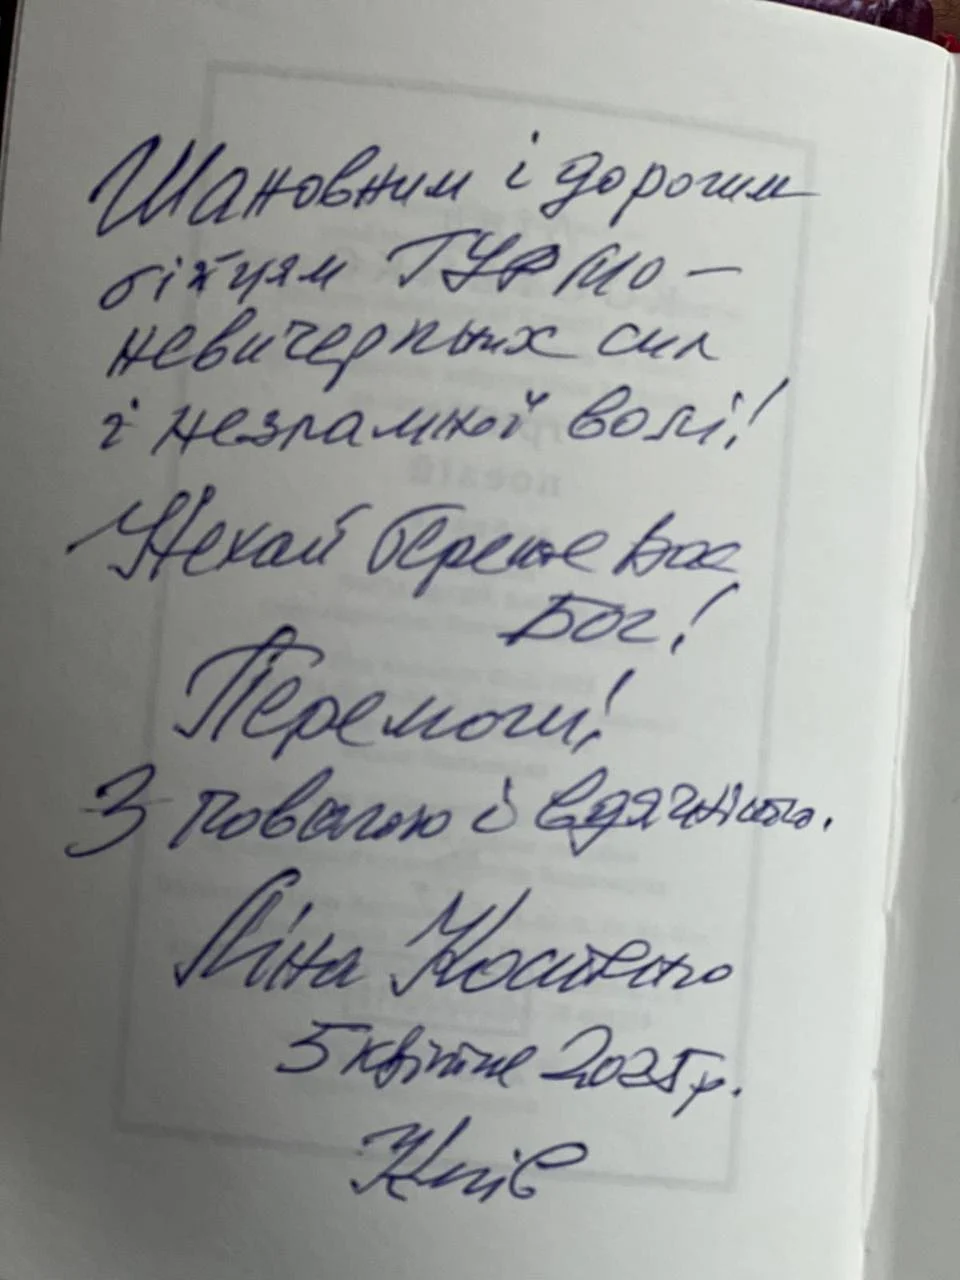 Шановним і дорогим
бійцям ГУР МО –
невичерпних сил
і незламної волі!
Нехай береже Вас
Бог!
Перемоги!
З повагою і вдячністю.
Ліна Костенко
5 квітня 2025 р.
Київ
поезій